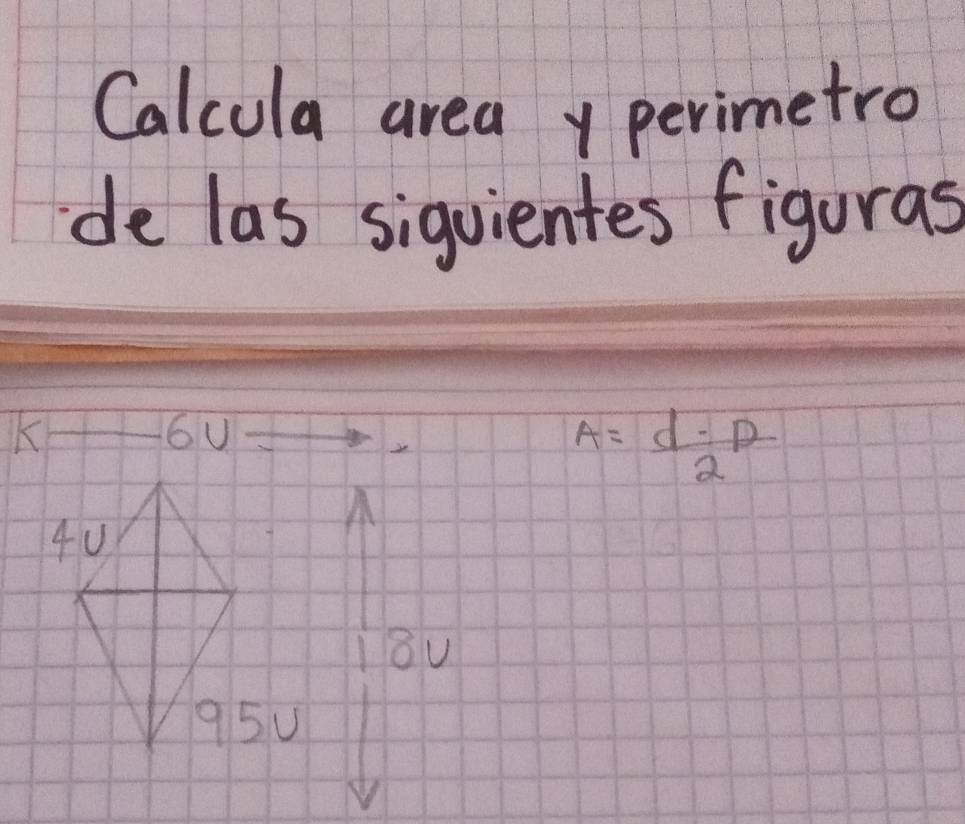 Calcula area y perimetro
de las siguientes figuras
6U
A = d · D
2
4U
8U
95U